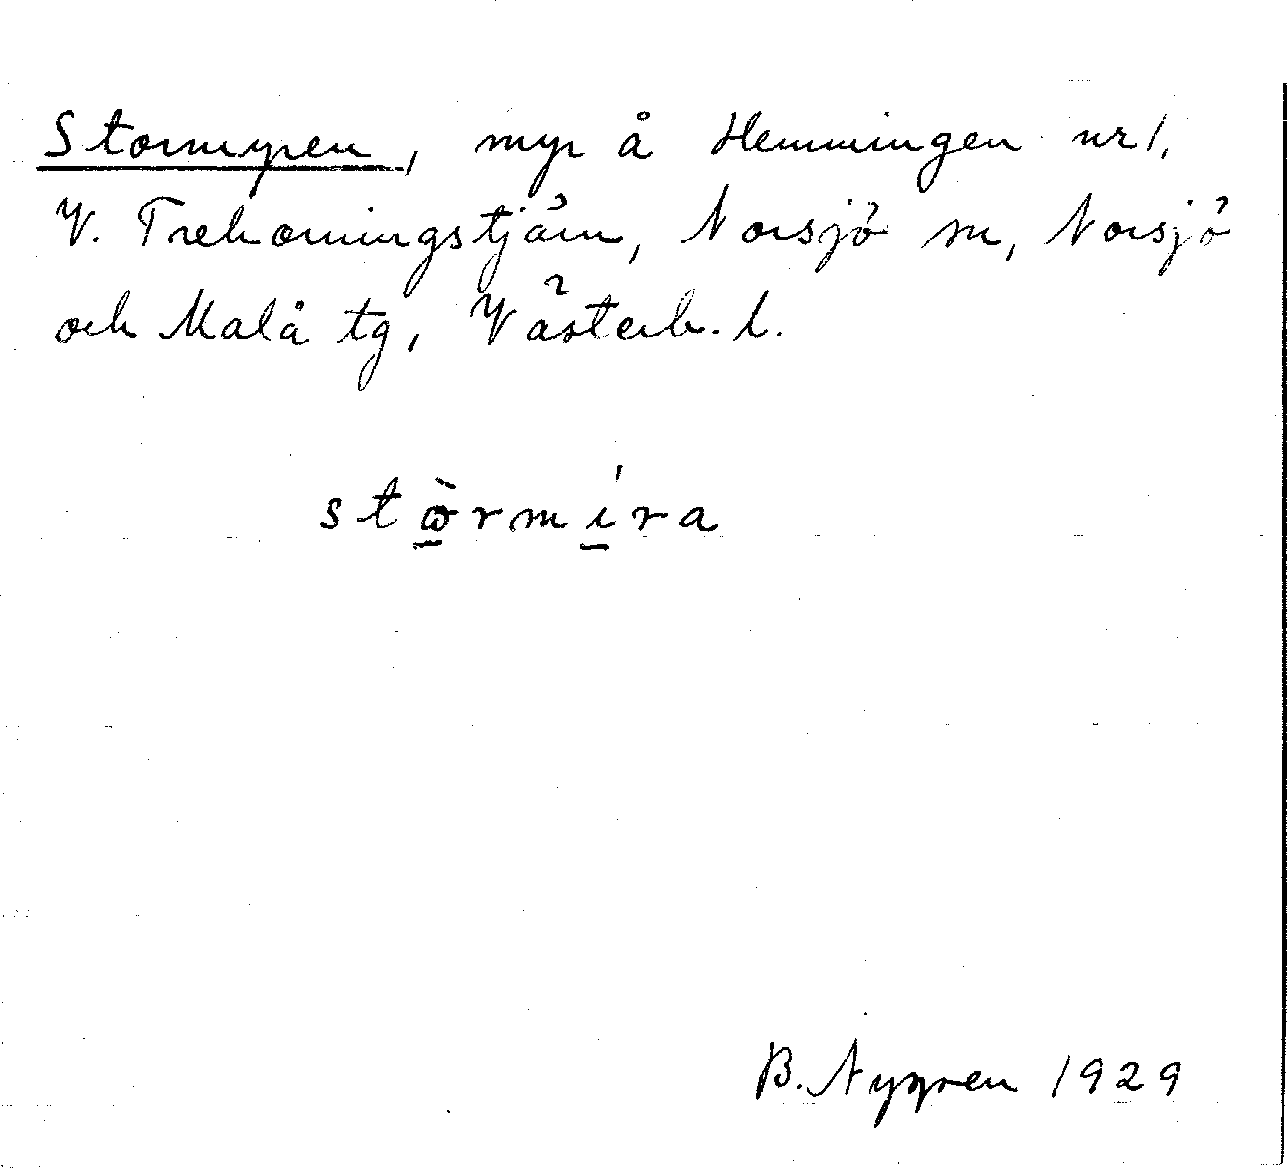 Stormyren, myr å Hemmingen nr 1,
V. Trehörningstjärn, Norsjö sn, Norsjö
och Malå tg, Västerb. l.
stὼ̲rmí̲ra
B. Nygren 1929